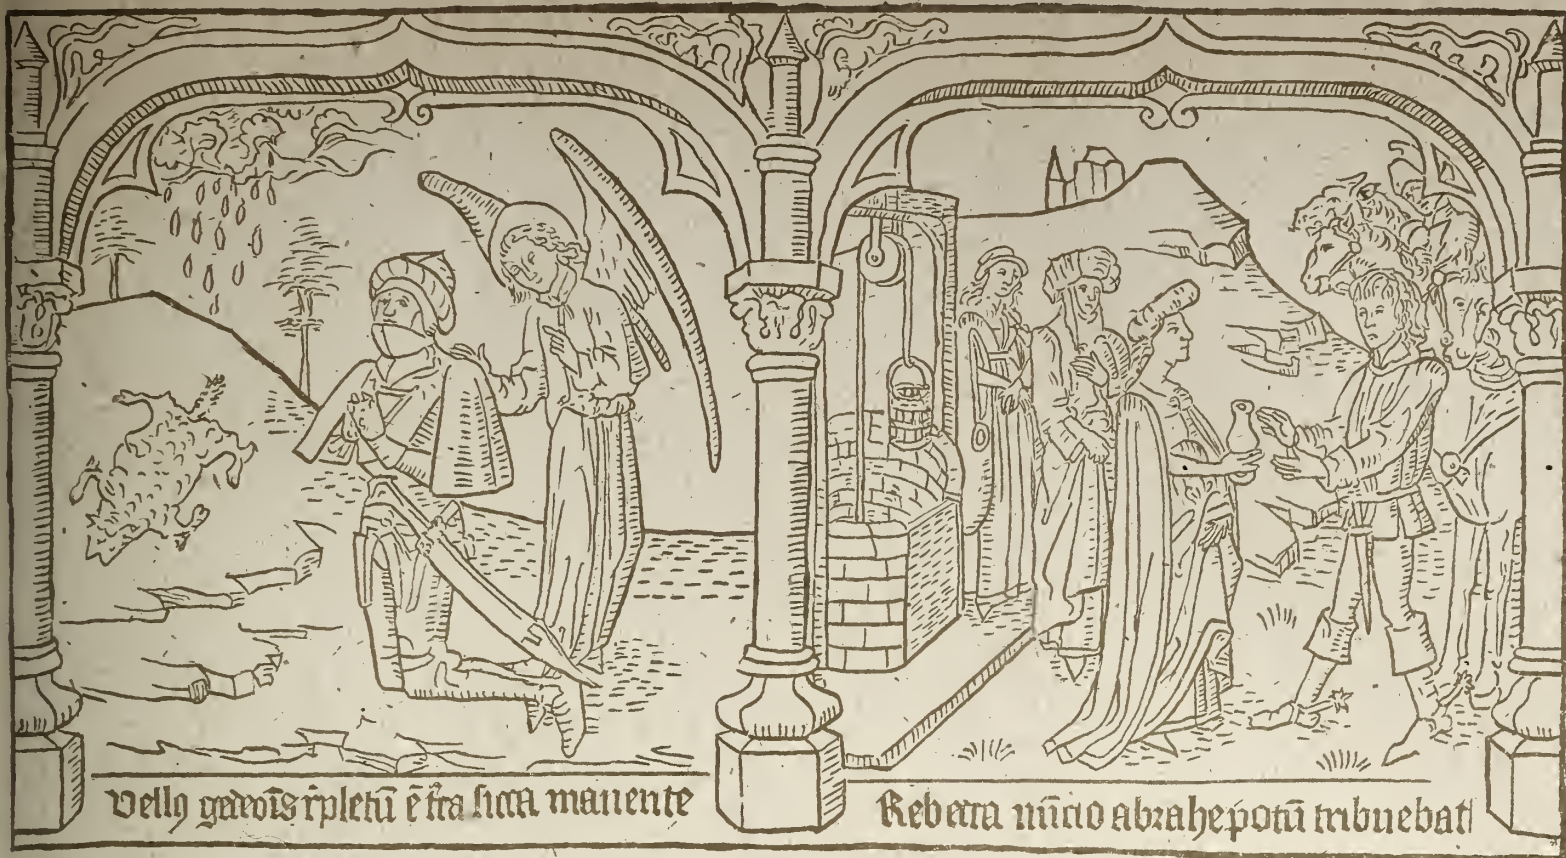 Vellꝰ gedeoīs rīpletū ē t̄ra sicca manente
Rebecca nūcio abrahe potū tribuebat